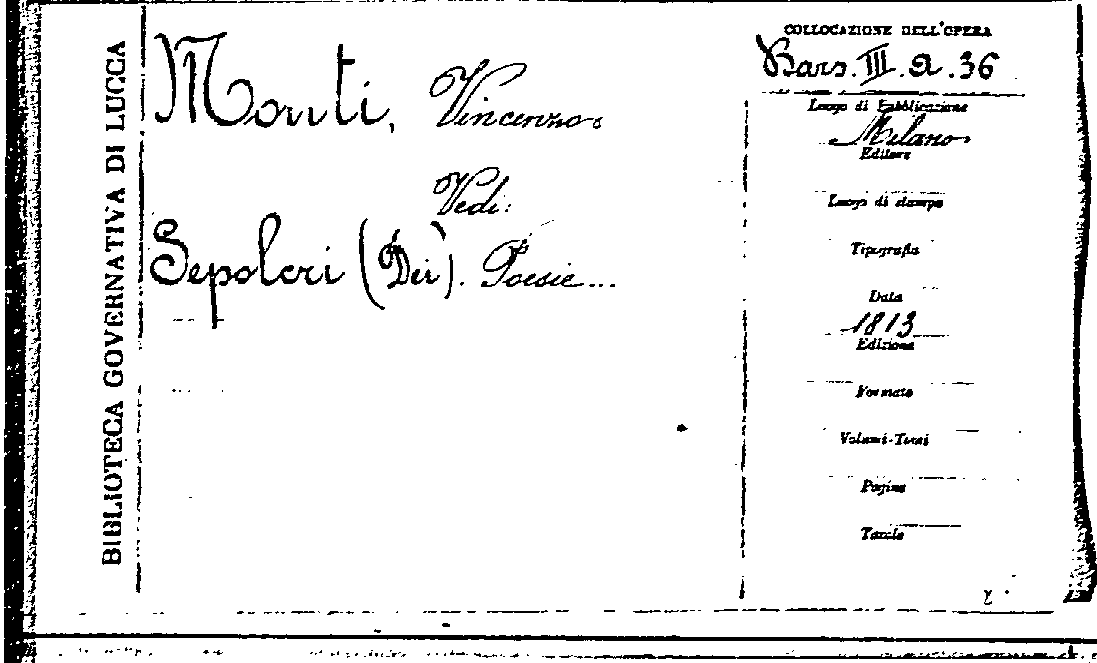 BIBLIOTECA GOVERNATIVA DI LUCCA
Monti, Vincenzo
Vedi:
Sepolcri (Dei). Poesie...
COLLOCAZIONE DELL'OPERA
Bars. III. a. 36
Luogo di Pubblicazione
Milano
Editore
Luogo di stampa
Tipografia
Data
1813
Edizione
Formato
Volumi-Tomi
Pagine
Tavole